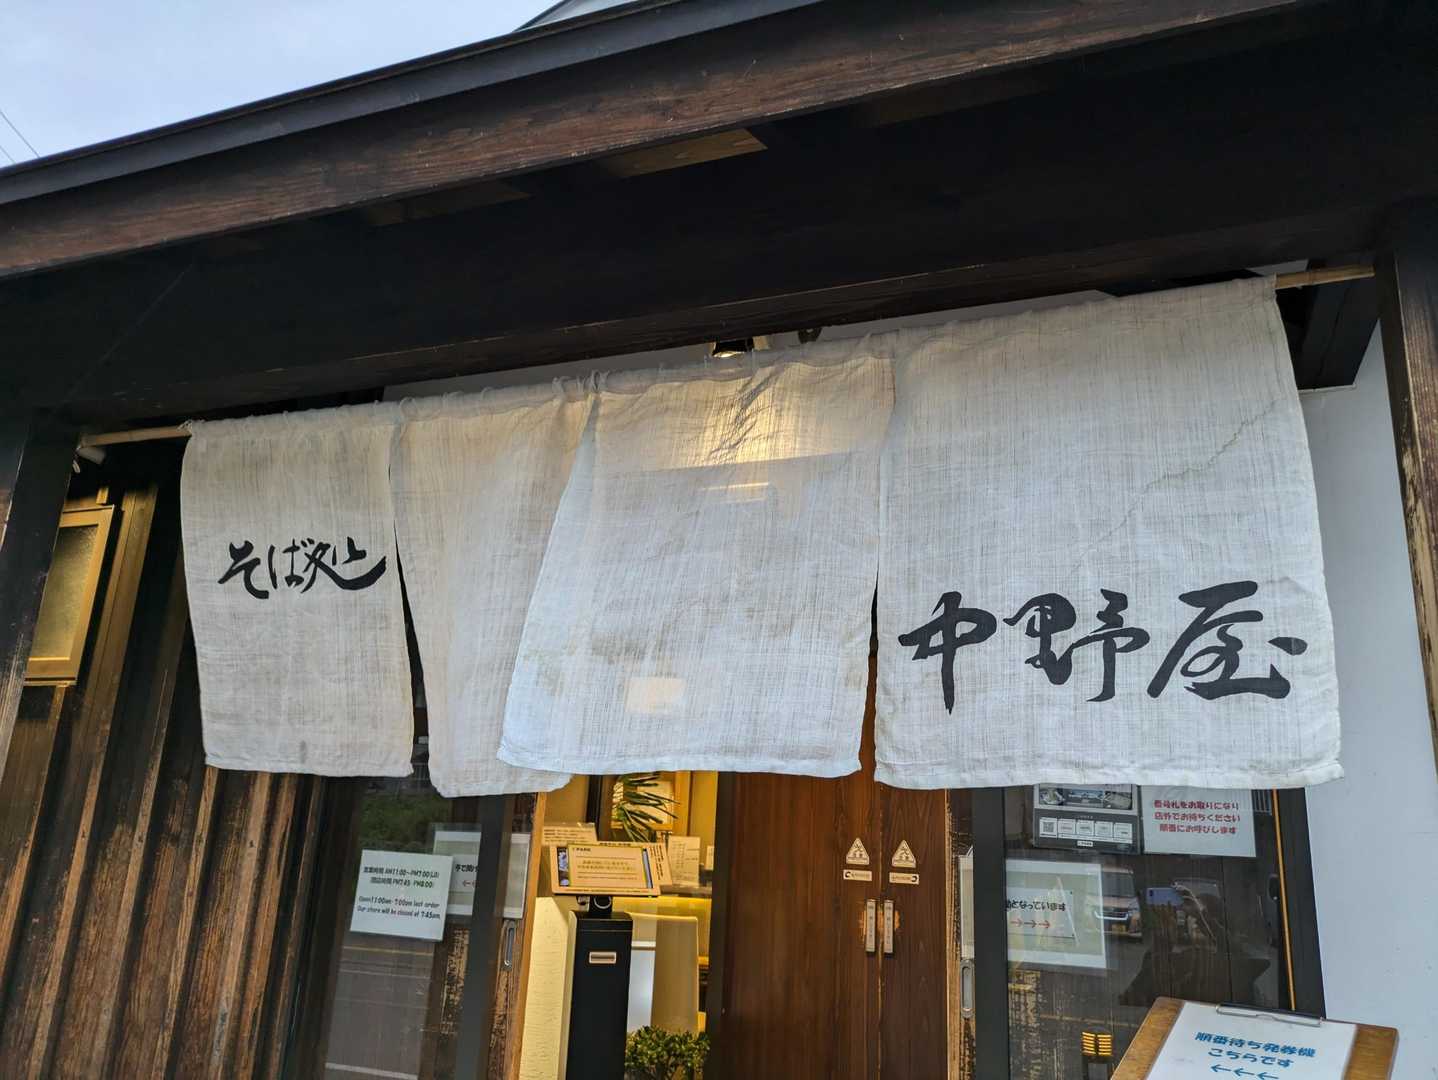 そば処
中野屋
営業時間 AM11:00~PM7:00(LO)
(閉店時間 PM7:45-PM8:00)
Open11:00am-7:00pm last order
Our store will be closed at 7:45pm.
番号札をお取りになり
店外でお待ちください
順番にお呼びします
となっています
→→→
順番待ち発券機
こちらです
←←←